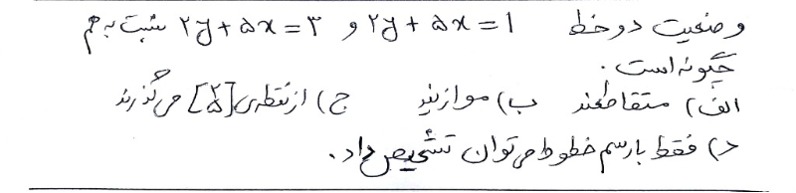 وضعیت دو خط ۲y + ۵x = ۱ و ۲y + ۵x = ۳ نسبت به هم
چگونه است.
الف) متقاطعند ب) موازیند ج) از نقطه‌ی [۲ ۵] می‌گذرند
د) فقط با رسم خطوط می‌توان تشخیص داد.